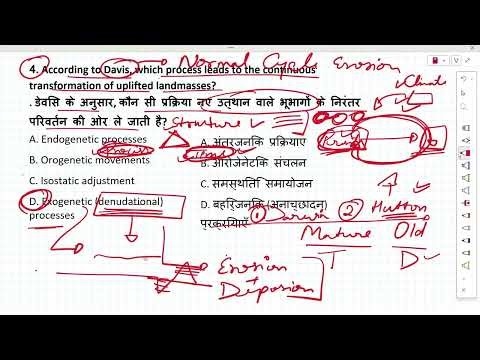 4. According to Davis, which process leads to the continuous
transformation of uplifted landmasses?
Normal Cycle Erosion
Climate
. डेवसि के अनुसार, कौन सी प्रक्रिया नए उत्थान वाले भूभागों के निरंतर
परिवर्तन की ओर ले जाती है?
Structure
A. Endogenetic processes
A. अंतरजनकि प्रक्रियाए
B. Orogenetic movements
B. ओरोजेनेटकि संचलन
C. Isostatic adjustment
C. समस्थति समायोजन
D. Exogenetic (denudational)
processes
D. बहरिजनकि (अनाच्छादन)
प्रक्रियाएँ
① Darwin ② Hutton
Mature Old
T D
Erosion
+
Diposion